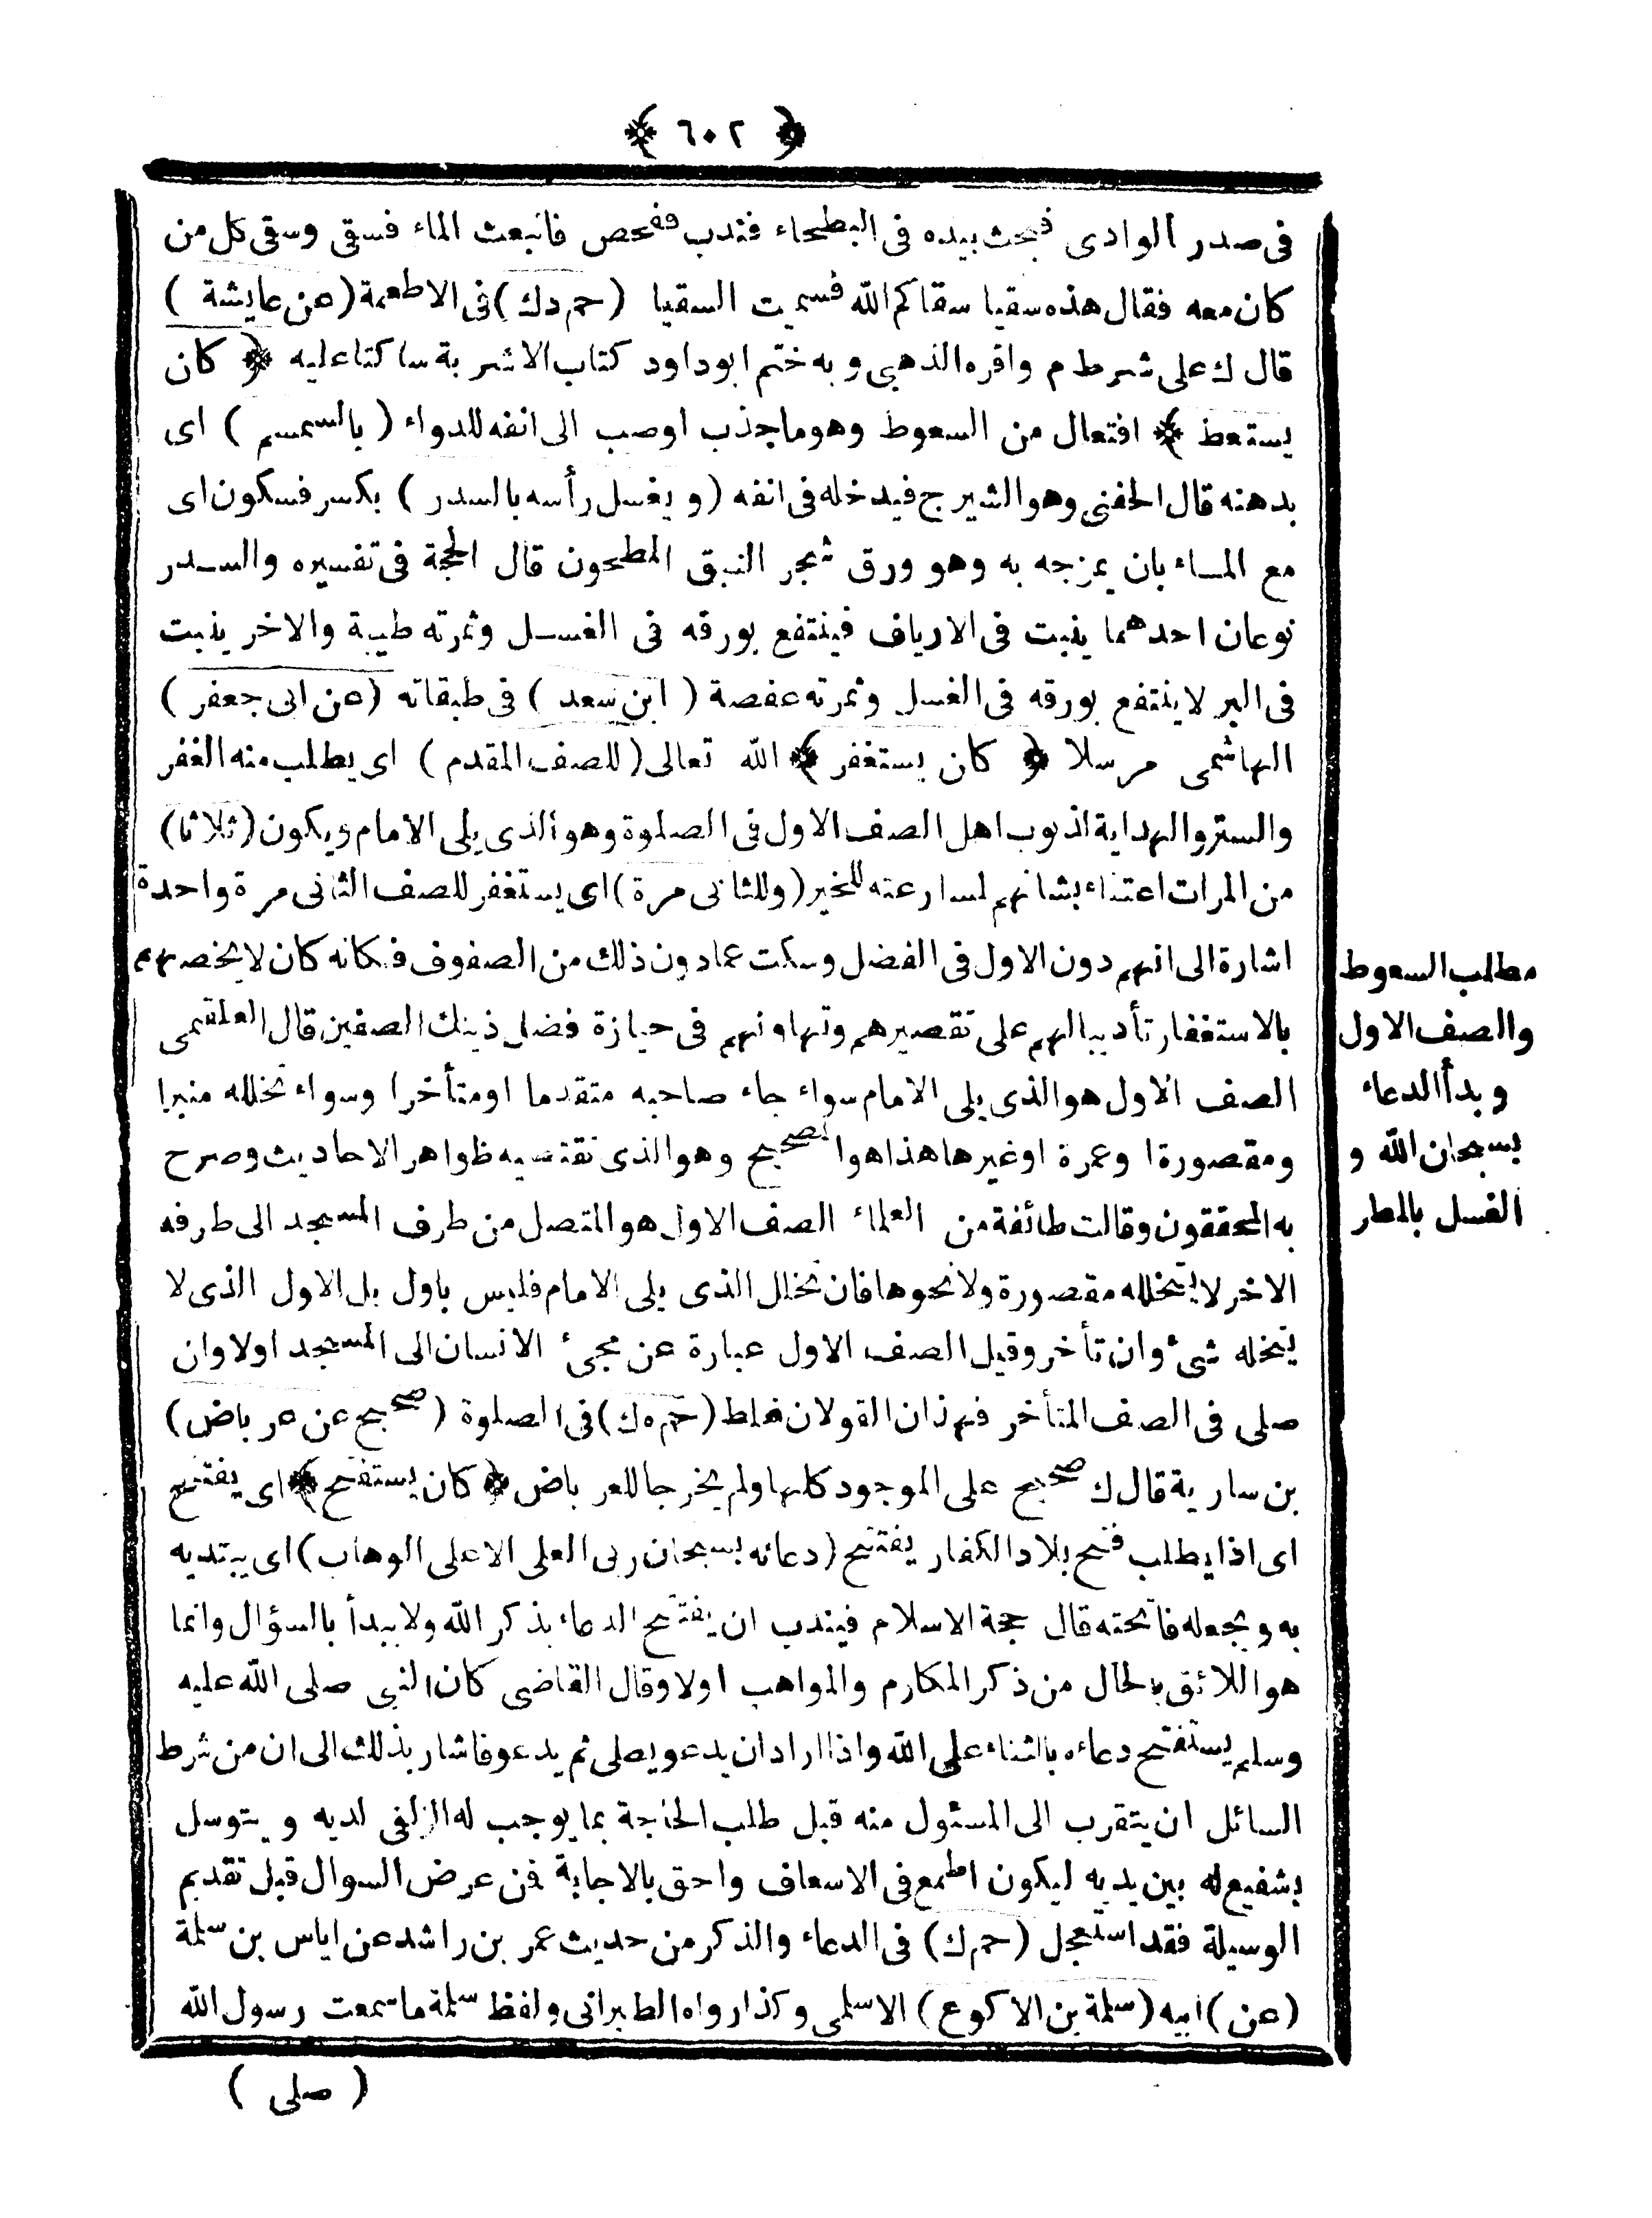 ﴿ ٦٠٢ ﴾
فى صدر الوادى فبحث بيده فى البطحاء فندب ففحص فانبعث الماء فسقى وسقى كل من
كان معه فقال هذه سقيا سقاكم الله فسميت السقيا (حم دك) فى الاطعمة (عن عايشة)
قال ك على شرط م واقره الذهبى و به ختم ابو داود كتاب الاشربة ساكتا عليه ﴿ كان
يستعط ﴾ افتعال من السعوط وهو ما جذب او صب الى انفه للدواء (بالسمسم) اى
بدهنه قال الحفنى وهو الشيرج فيدخله فى انفه (ويغسل رأسه بالسدر) بكسر فسكون اى
مع الماء بان يمزجه به وهو ورق شجر النبق المطحون قال الحجة فى تفسيره والسدر
نوعان احدهما ينبت فى الارياف فينتفع بورقه فى الغسل وثمرته طيبة والاخر ينبت
فى البر لاينتفع بورقه فى الغسل وثمرته عفصة (ابن سعد) فى طبقاته (عن ابى جعفر)
الهاشمى مرسلا ﴿ كان يستغفر ﴾ الله تعالى (للصف المقدم) اى يطلب منه الغفر
والستر والهداية اذنوب اهل الصف الاول فى الصلوة وهو الذى يلى الامام ويكون (ثلاثا)
من المرات اعتناء بشانهم لمسارعته للخير (وللثانى مرة) اى يستغفر للصف الثانى مرة واحدة
اشارة الى انهم دون الاول فى الفضل وسكت عما دون ذلك من الصفوف فكانه كان لا يخصهم
بالاستغفار تأديبا لهم على تقصيرهم وتهاونهم فى حيازة فضل ذينك الصفين قال العلقمى
الصف الاول هو الذى يلى الامام سواء جاء صاحبه متقدما او متأخرا وسواء تخلله منبرا
ومقصورة ا وعمرة او غيرها هذا هو الصحيح وهو الذى تقتضيه ظواهر الاحاديث وصرح
به المحققون وقالت طائفة من العلماء الصف الاول هو المتصل من طرف المسجد الى طرفه
الاخر لا يتخلله مقصورة ولا نحوها فان تخلل الذى يلى الامام فليس باول بل الاول الذى لا
يتخلله شئ وان تأخر وقيل الصف الاول عبارة عن مجئ الانسان الى المسجد اولا وان
صلى فى الصف المتأخر فهذان القولان غلط (حم ه ك) فى الصلوة (صحيح عن عرباض)
بن سارية قال ك صحيح على الموجود كلها ولم يخرجا للعرباض ﴿ كان يستفتح ﴾ اى يفتتح
اى اذا يطلب فتح بلاد الكفار يفتتح (دعائه بسبحان ربى العلى الاعلى الوهاب) اى يبتديه
به ويجعله فاتحته قال حجة الاسلام فيندب ان يفتتح الدعاء بذكر الله ولا يبدأ بالسؤال وانما
هو اللائق بالحال من ذكر المكارم والمواهب اولا وقال القاضى كان النبى صلى الله عليه
وسلم يستفتح دعاءه بالثناء على الله واذا اراد ان يدعو يصلى ثم يدعو فاشار بذلك الى ان من شرط
السائل ان يتقرب الى المسئول منه قبل طلب الحاجة بما يوجب له الزلفى لديه و يتوسل
بشفيع له بين يديه ليكون اطمع فى الاسعاف واحق بالاجابة فمن عرض السوال قبل تقديم
الوسيلة فقد استعجل (حم ك) فى الدعاء والذكر من حديث عمر بن راشد عن اياس بن سلمة
(عن) ابيه (سلمة بن الاكوع) الاسلمى وكذا رواه الطبرانى ولفظ سلمة ما سمعت رسول الله
(صلى)
مطلب السعوط
والصف الاول
وبدأ الدعاء
بسبحان الله و
الغسل بالمطر